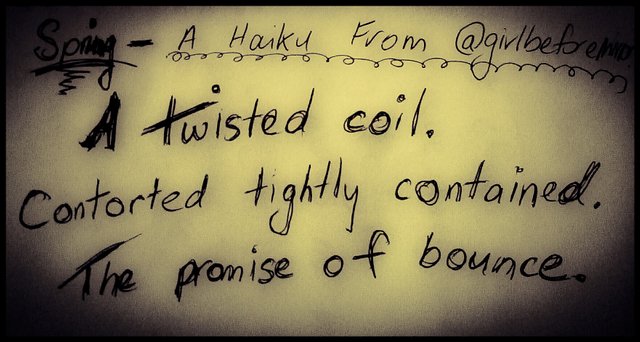 Spring - A Haiku From @girlbeforemirro
A twisted coil.
Contorted tightly contained.
The promise of bounce.